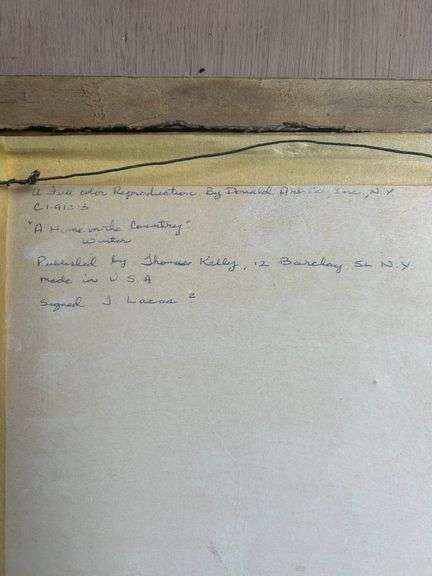 A Full color Reproduction By Donald Art Co. Inc., N.Y.
C1-9123
"A Home in the Country"
Winter
Published by Thomas Kelly, 12 Barclay St. N.Y.
made in U S A
Signed J Lucas